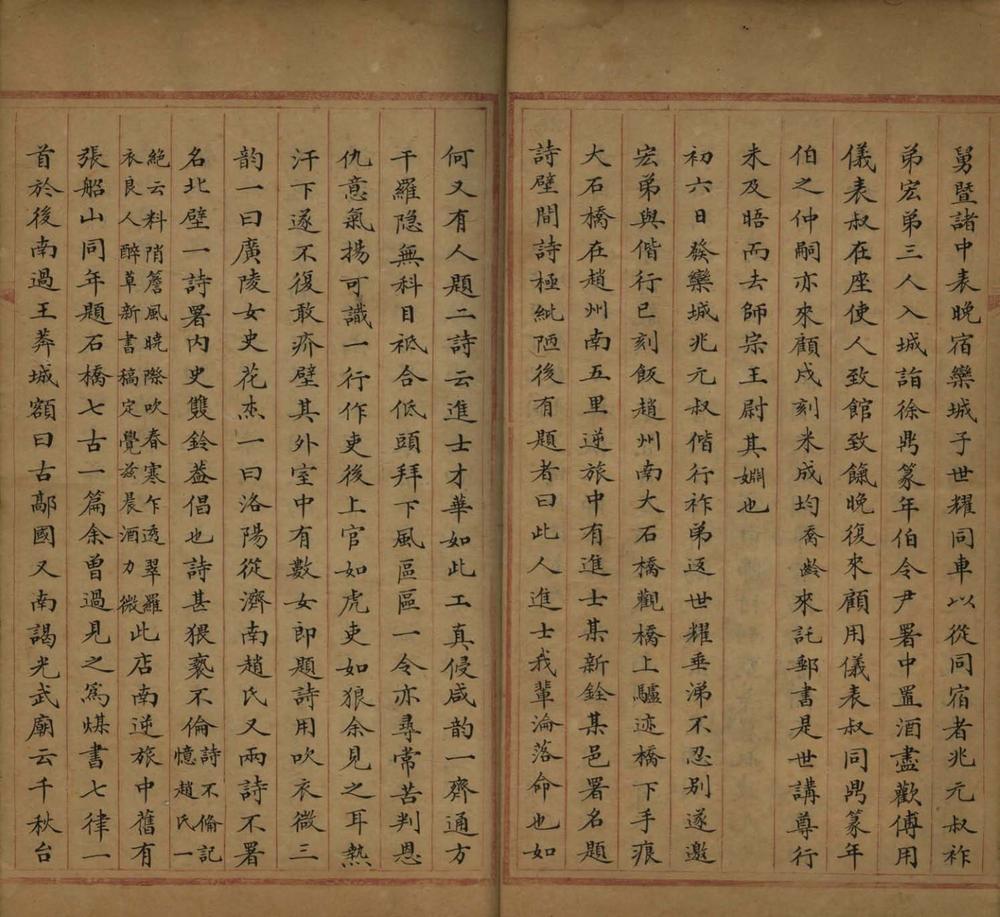 舅暨諸中表晚宿欒城子世耀同車以從同宿者兆元叔祚
弟宏弟三人入城詣徐鼎篆年伯令尹署中置酒盡歡傅用
儀表叔在座使人致館致餼晚復來顧用儀表叔同鼎篆年
伯之仲嗣亦來顧戌刻米成均喬齡來託郵書是世講尊行
未及晤而去師宗王尉其嫺也
初六日發欒城兆元叔偕行祚弟返世耀垂涕不忍別遂邀
宏弟與偕行巳刻飯趙州南大石橋觀橋上驢迹橋下手痕
大石橋在趙州南五里逆旅中有進士某新銓某邑署名題
詩壁間詩極紕陋後有題者曰此人進士我輩淪落命也如
何又有人題二詩云進士才華如此工真侵咸韵一齊通方
干羅隐無科目祗合低頭拜下風區區一令亦尋常苦判恩
仇意氣揚可識一行作吏後上官如虎吏如狼余見之耳熱
汗下遂不復敢疥壁其外室中有數女郎題詩用吹衣微三
韵一曰廣陵女史花杰一曰洛陽從濟南趙氏又兩詩不署
名北壁一詩署内史雙鈴葢倡也詩甚猥褻不倫詩不備記
憶趙氏一
絶云料陗簷風曉際吹春寒乍透翠羅
衣良人醉草新書稿定覺兹晨酒力微此店南逆旅中舊有
張船山同年題石橋七古一篇余曾過見之爲煤書七律一
首於後南過王莽城額曰古鄗國又南謁光武廟云千秋台